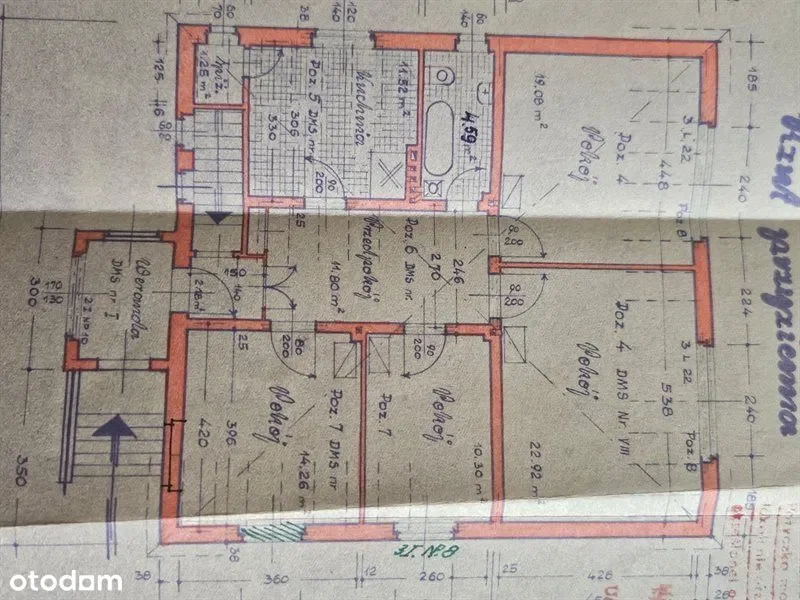 Rzut
parzyziemna
Spiż.
1.25 m²
Poz. 5 DMS. nr V
kuchnia
11.52 m²
306
330
4.59 m²
19.08 m²
Pokój
Poz. 4
448
3 L 22
Poz. B
Weranda
DMS nr I
2 I NP 10
2.18 m²
150
140
Przedpokój
11.80 m²
Poz. 6 DMS. nr
270
246
90
200
80
200
90
200
25
25
Pokój
14.26 m²
Poz. 7 DMS. nr
396
420
Pokój
10.30 m²
Poz. 7
Pokój
22.92 m²
Poz. 4 DMS Nr. VIII
538
3 L 22
Poz. B
60
70
38
120
140
60
140
125
185
240
224
240
300
170
130
350
38
38
360
12
260
25
428
38
otodom